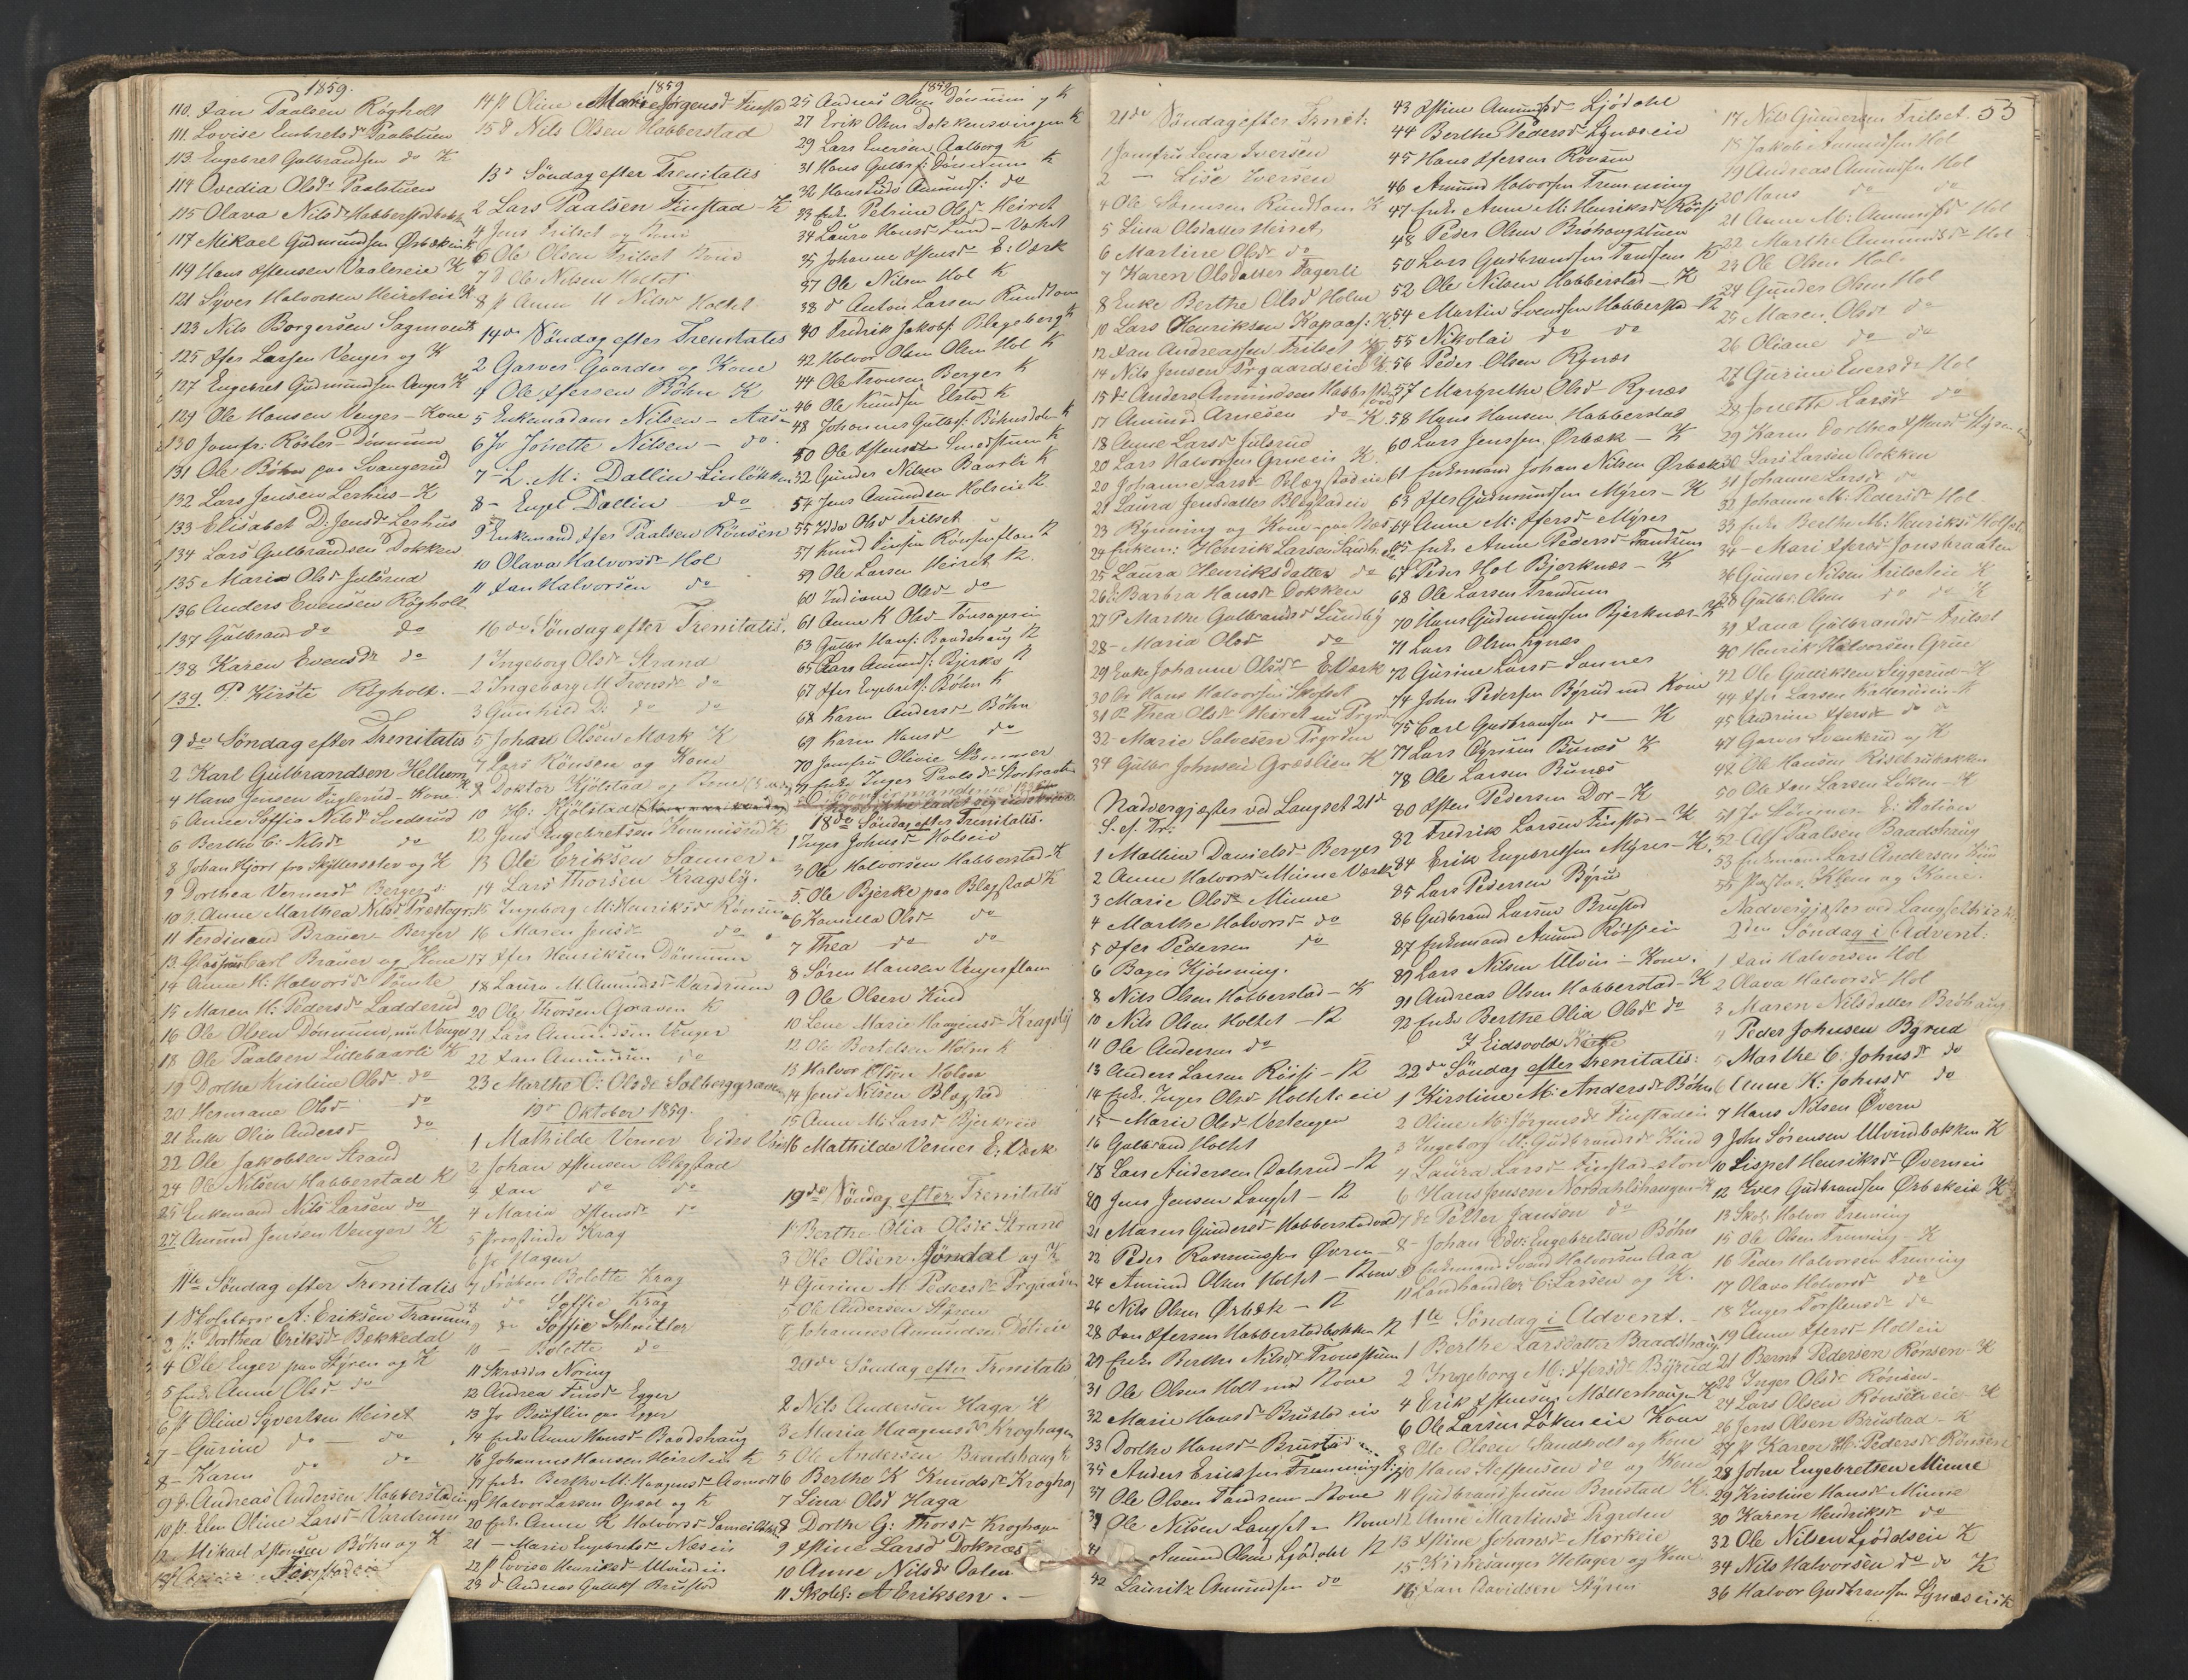 1859.
110. Jan Paalsen Rögholt
111. Lovise Embretsd. Paalstuen
113 Engebret Gulbrandsen do K
114 Ovedia Olsdr Paalstuen
115 Olava Nilsd. Habberstadbakk
117 Mikael Gudmundsen Ørbækeie K
119 Hans Steensen Vaaleneie K
121 Syver Halvorsen Heireteie K
123 Nils Borgersen Sagmoen K
125 Iffer Larsen Venger og K
127 Engebret Gudmundsen Venger K
129 Ole Hansen Venger - Kone
130 Jomfr. Rösler Dönnum
131 Ole Böhn paa Svangerud
132 Lars Jensen Lerhus - K
133 Elisabet D. Jensd. Lerhus
134 Lars Gulbrandsen Dokken
135 Maria Olsd. Julsrud
136 Anders Evensen Rögholt
137 Gulbrand do do
138 Karen Evensdr do
139. P. Kirste Rögholt.
9de Söndag efter Trenitatis
2 Karl Gulbrandsen Hellum K
4 Hans Jensen Fuglerud - Kone
5 Anne Soffia Nilsd. Svederud
6 Berthe C. Nilsdr do
8 Johan Hjort fra Skyttersalev og K
9 Dorthea Vernersd. Berger
10 p. Anne Marthea Nilsd. Prestegr.
11 Ferdinand Brauer Berger
13. Carl Brauer og Kone
14 Anne H. Halvorsd. Tömte
15 Maren H. Pedersd. Ladderud
16 Ole Olsen Dönnum, nu Venger
18 Ole Paalsen Littebaarli K
19 Dorthe Kristine Olsd. do
20 Hermane Olsd. do
21 Enke Olia Andersd. do
22 Ole Jakobsen Strand
24 Ole Nilsen Habberstad K
25 Enkemand Nils Larsen do
27 Amund Jensen Venger K
11te Söndag efter Trenitatis
1 Skolelærer A. Eriksen Trannum
2 p. Dorthea Eriksd. Bækkedal
4 Ole Enger paa Styren og K
5 Enke Anne Olsd. do
6 p. Oline Syvertsen Heiret
7 - Gurine do do
8 - Karen do do
9 d. Andreas Andersen Habberstadeie
10 p. Elen Oline Larsd. Vardrum
12 Mikael Steensen Böhn og K
1859
14 p. Oline Marie Jörgensd. Finstad
15 d Nils Olsen Habberstad
13de Söndag efter Trenitatis
2 Lars Paalsen Finstad - K
4 Jens Trilset og Kone
6 Ole Olsen Trilset Kone
7 d Ole Nilsen Holtet
8 p Anne M Nilsd. Holtet
14de Söndag efter Trenitatis
2 Garver Gaarder og Kone
4 Ole Iffersen Böhn K
5 Enkemadam Nilsen - Aas
6 Jo Josette Nilsen - do
7 - L. M. Dallin Linlökken
8 - Engel Dallin do
9 Enkemand Iffer Paalsen Rönsen
10 Olava Halvorsd. Hol
11 Jan Halvorsen do
16de Söndag efter Trenitatis.
1 Ingeborg Olsdr Strand
2 Ingeborg M. Tronsdr do
3 Gunhild D. do do
5 Johan Olsen Mork K
7 Lars Rönsen og Kone
9 Doktor Kjölstad og
10 H. Kjölstad
12 Jens Engebretsen Kommisrud K
13 Ole Eriksen Sanner
14 Lars Thorsen Kragsby.
15 Ingeborg M. Henriksd. Rönsen
16 Maren Jensdr do
17 Iffer Henriksen Dönnum
18 Laura M. Amundsd. Vardrum
20 Ole Thorsen Graven K
21 Lars Amundsen Venger
22 Jan Amundsen do
23 Marthe C. Olsdr Solberggraven
19de Oktober 1859.
1 Mathilde Verner Eidsv. Værk
2 Johan Steensen Blegstad
3 Jan do do
4 Maria Steensdr do
5 Provstinde Krag
6 Jr Hagen
7 Fröken Bolette Krag
8 do Soffie Krag
9 do Soffie Schnitler
10 - Bolette do
11 Skrædder Noring
12 Andrea Finsd. Egger
13 Jo Beuflin paa Egger
14 Enke Anne Hansd. Baadshaug
16 Johannes Hansen Heireteie K
17 Enke Berthe M. Haagensd. Aamodt
19 Halvor Larsen Opsal og K
20 Enke Anne K Halvorsd. Sannereie
21 - Marie Engebretsdr Næseie
22 p Lovise Henriksd. Ulvineie
23 d Andreas Gulbrs. Brustad
1859
25 Andreas Olsen Dönnum og K
27 Erik Olsen Dokkensvingen K
29 Lars Eversen Aalborg K
31 Hans Gulbrs. Dönnum K
32 Hans Lars Amunds. do
33 Enke Petrine Olsd. Heiret
34 Laura Hansd. Lund - Vahet
35 Johanne Hansd. E. Værk
37 Ole Nilsen Hol K
38 d Anton Larsen Rundtom
40 Fredrik Jakobs. Blegeberg K
42 Halvor Olsen Hol K
44 Ole Tronsen Berger K
46 Ole Knudsen Elstad K
48 Johannes Gulbrs. Böhnsdalen K
50 Ole Steensen Smedstuen K
52 Gunder Nilsen Baarli K
54 Jens Amundsen Holseie K.
55 Ida Olsd. Trilset
57 Knud Finsen Rönsenflaen K
59 Ole Larsen Heiret K.
60 Indiana Olsd. do
61 Anne K Olsd. Tönsageeie
63 Gulbr Hans. Baadshaug K
65 Lars Amunds. Bjerke K
67 Iffer Engebrets. Böhn K
68 Karen Andersd. Böhn
69 Karen Hansd. do
70 Jomfru Olivie Stömmer
71 Enke Inger Paalsd. Storbraaten
18de Söndag efter Trenitatis.
1 Inger Johnsd. Holseie
3 Ole Halvorsen Habberstad K
5. Ole Bjerke paa Blegstad K
6 Kamilla Olsdr do
7 Thea do do
8 Sören Hansen Vengerflaen
9 Ole Olsen Kind
10 Lene Marie Haagensd. Kragsby
12 Ole Bertelsen Holm K
13 Halvor Olsen Holm
14 Jens Nilsen Blegstad
15 Anne M. Larsd. Bjerkeeie
16 Mathilde Verner E. Værk
19de Söndag efter Trenitatis
1 Berthe Olia Olsdr Strand
3 Ole Olsen Jöndal og K
4 Gurine M. Pedersdr Prgaarden
5 Ole Andersen Styren
6 Johannes Amundsen Döleeie
20de Söndag efter Trenitatis
2 Nils Andersen Haga K
3 Maria Haagensdr Kroghagen
5 Ole Andersen Baadshaug K
6 Berthe K Knudsdr Kroghag
7 Lina Olsd. Haga
8 Dorthe G. Thorsd. Kroghagen
9 Stine Larsd. Doknæs
10 Anne Nilsdr Dalen
11 Skolel. A Eriksen.
21de Söndag efter Trinit:
1 Jomfru Lena Iversen
2 - Lise Iversen
4 Ole Sörensen Rundtom K
5 Lina Olsdatter Heiret
6 Martine Olsdr do
7 Karen Olsdatter Fagerli
8 Enke Berthe Olsd. Holm
10 Lars Henriksen Kapaas: K
12 Jan Andreassen Trilset K
14 Nils Jensen Prgaardseie K
15 d. Anders Amundsen Habberstad
17 Amund Arnesen do K
18 Anne Larsd. Julsrud
20 Lars Halvorsen Grueeie K
20 Johanne Larsdr Blegstadeie
21 Laura Jensdatter Blegstadeie
23 Rynning og Kone paa Næs
24 Enkem. Henrik Larsen Sandh.
25 Laura Henriksdatter do
26 Barbra Hansdr Dokken
27 P Marthe Gulbrandsd. Lundby
28 - Maria Olsd. do
29 Enke Johanne Olsdr E.Værk
30 Hans Halvorsen Skofset
31 P. Thea Olsdr Heiret nu Prgrd
32 - Marie Salvesen Prgrden
34 Gulbr. Johnsen Græslien K
Nadvergjæster ved Langset 21de
S. ef. Tr:
1 Mathea Danielsd. Berger
2 Anne Halvorsd. Minne Værk
3 Marie Olsdr Minne
4 Marthe Halvorsd. do
5 Iffer Pedersen do
6 Bager Hjönning.
8 Nils Olsen Habberstad - K
10 Nils Olsen Holtet - K
11 Ole Andersen do
13 Anders Larsen Röise - K
14 Enke. Inger Olsd. Holteteie
15 - Marie Olsd. Vestengen
16 Gulbrand Holtet
18 Lars Andersen Dalsrud - K
20 Jens Jensen Langset - K
21 Maren Gundersd. Habberstadvad
22 Peder Rasmussen Øvern
24 Amund Olsen Holtet - Kone
26 Nils Olsen Ørbæk - K
28 Jan Iffersen Habberstadbakken K
29 Enke Berthe Nilsdr Tronsstuen
31 Ole Olsen Holt med Kone
32 Marie Hansd. Brustadeie
33 Dorthe Hansd. Brustadeie
35 Anders Eriksen Fremmingseie
37 Ole Olsen Tandsem - Kone
39 Ole Nilsen Langset - Kone
41 Amund Olsen Ljödahl K
42 Lauritz Amundsen do
43 Stine Amundsd. Ljödahl
44 Berthe Pedersd. Lynæseie
45 Hans Iffersen Rönsen
46 Amund Halvorsen Fremming
47 Enke Anne M. Henriksd. Röise
48 Peder Olsen Bröhaugstuen
50 Lars Gudbrandsen Tandsem K
52 Ole Nilsen Habberstad - K
54 Martin Svendsen Habberstad - K
55 Nikolai do do
56 Peder Olsen Rynæs
57 Margrethe Olsd. Rynæs
58 Hans Hansen Habberstad
60 Lars Jenssen Ørbæk - K
61 Enkemand Johan Nilsen Ørbæk
63 Iffer Gudmundsen Myrer - K
64 Anne M. Iffersd. Myrer
65 Enke Anne Pedersd. Trandum
67 Peder Hol Bjerknæs - K
68 Ole Larsen Trandum
70 Hans Gudmundsen Bjerknæs - K
71 Lars Olsen Lynæs
72 Gurine Larsd. Sannes
74 John Pedersen Byrud med Kone
75 Carl Gudbrandsen do - K
77 Lars Bunæs K
78 Ole Larsen Bunæs
80 Steen Pedersen Dor - K
82 Fredrik Larsen Finstad - K
84 Erik Engebretsen Myrer - K
85 Lars Pedersen Byrud
86 Gudbrand Larsen Brustad
87 Enkemand Amund Röiseeie
89 Lars Nilsen Ulvin - Kone.
91 Andreas Olsen Habberstad - K
92 Enke Berthe Olia Olsdr do
I Eidsvold Kirke
22de Söndag efter Trenitatis:
1 Kirstine M. Andersdr Böhn
2 Oline M. Jörgensdr Finstadeie
3 Ingeborg M. Gudbrandsd. Kind
4 Laura Larsd. Finstad store
6 Hans Jensen Nordahlshaugen K
7 de Petter Jansen do
8 - Johan Edv. Engebretsen Böhn
9 Enkemand Svend Halvorsen Aaa
11 Landhandler C. Larsen og K.
1te Söndag i Advent.
1 Berthe Larsdatter Baadshaug
2 Ingeborg M. Iffersdr Byrud
4 Erik Steensen Möllerhaugen K
6 Ole Larsen Lökeneie Kone
8 Ole Olsen Sandholt og Kone
10 Hans Steffensen do og Kone
11 Gudbrand Jensen Brustad K
12 Anne Martinsdr Prgrden
13 Stine Johansd. Morkeie
15 Kirkesanger Hetager og Kone
16 Jan Davidsen Styren
17 Nils Gundersen Trilset. 55
18 Jakob Amundsen Hol
19 Andreas Amundsen Hol
20 Hans do do
21 Anne M. Amundsd. Hol
22 Marthe Amundsdr Hol
23 Ole Olsen Hol
24 Gunder Olsen Hol
25 Maren Olsdr do
26 Oliane do do
27 Gurine Eversdr Hol
28 Jonette Larsdr do
29 Karen Dorthea Styren
30 Lars Larsen Dokken
31 Johanne Larsdr do
32 Johanne M. Pedersdr Hol
33 Enke Berthe M. Henriksd. Holset
34 - Mari Iffersd. Jonsbraaten
36 Gunder Nilsen Trilseteie K
38 Gulbr. Olsen do do K
39 Jana Gulbrandsd. Trilset
40 Henrik Halvorsen Grue
42 Ole Gulliksen Liggerud - K
44 Iffer Larsen Katterudeie K
45 Andrine Iffersdr do do
47 Garver Svenkerud og K
48 Ole Hansen Risebrubakken
50 Ole Jan Larsen Löken - K
51 Jo Stömmer E. Station
52 Alf Paalsen Baadshaug
53 Enkemand Lars Andersen Kind
55 Pastor Klem og Kone.
Nadvergjæster ved Langset Kirke
2den Söndag i Advent.
1 Jan Halvorsen Hol
2 Olava Halvorsd. Hol
3 Maren Nilsdatter Bröhaug
4 Peder Johnsen Byrud
5 Marthe C. Johnsd. do
6 Anne K. Johnsdr do
7 Hans Nilsen Øvern
9 John Sörensen Ulvinbakken K
10 Lispet Henriksd. Øverneie
12 Iver Gudbrandsen Ørbækeie K
13 Skol. Halvor Fremming
15 Ole Olsen Fremming - K
16 Peder Halvorsen Fremming
17 Olava Halvorsd. do
18 Inger Torstensdr do
19 Anne Iffersd. Holteie
21 Bernt Pedersen Rönsen - K
22 Inger Olsdr Rönsen
24 Lars Olsen Rönseneie - K
26 Jens Olsen Brustad - K
27 p Karen M. Pedersdr Rönsen
28 John Engebretsen Minne
29 Kristine Hansdr Minne
30 Karen Hendriksdr do
32 Ole Nilsen Ljödalseie K
34 Nils Halvorsen do do K
36 Halvor Gudbrandsen Lynæseie K